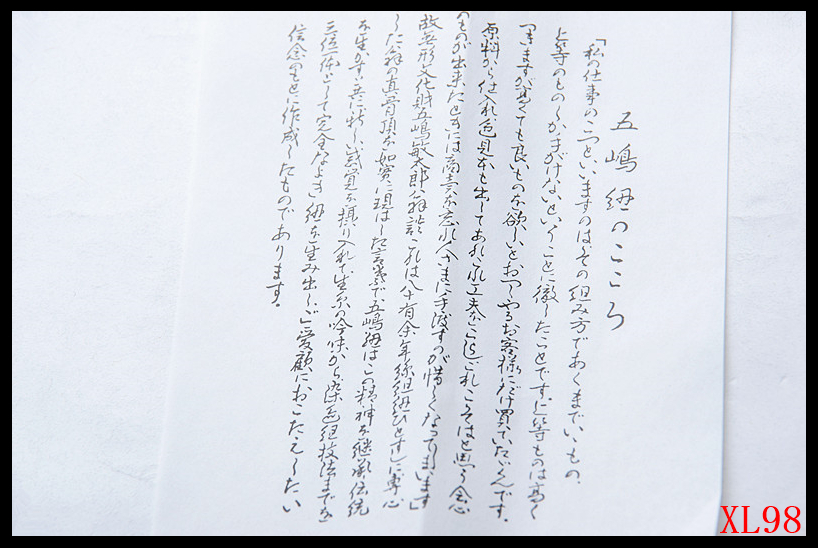 五嶋紐のこころ
「私の仕事のこつといいますのはその組み方であくまでいいもの、
上等のものしか手がけないということに徹したことです。上等ものは高く
つきますが高くても良いものを欲しいとおっしゃるお客様にだけ買っていただくんです。
原料から仕入れ色見本も出してあれこれ工夫をこらしこれこそはと思う会心
のものが出来たときには商売を忘れ人さまに手渡すのが惜しくなってしまいます」
故無形文化財五嶋敏太郎翁談 これは八十有余年絲組紐ひとすじに専心
した翁の真骨頂を如実に現はした言葉で五嶋紐はこの精神を継承伝統
を生かす共に新しい感覚を摂り入れて生糸の吟味から染色組技法までを
三位一体として完全なよき紐を生み出しご愛顧におこたえしたい
信念のもとに作成したものであります。
XL98